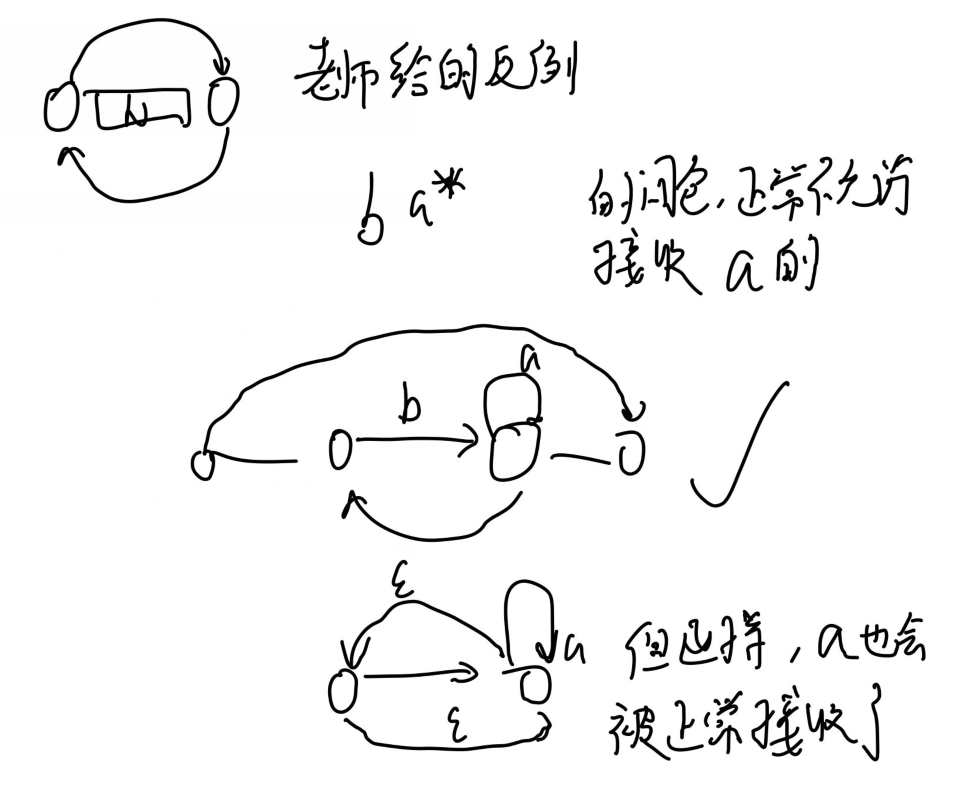 老师给的反例
N
b a*
的闭包,正常不允许
接收 a 的
a
b
ε
a
ε
但这样,a也会
被正常接收了